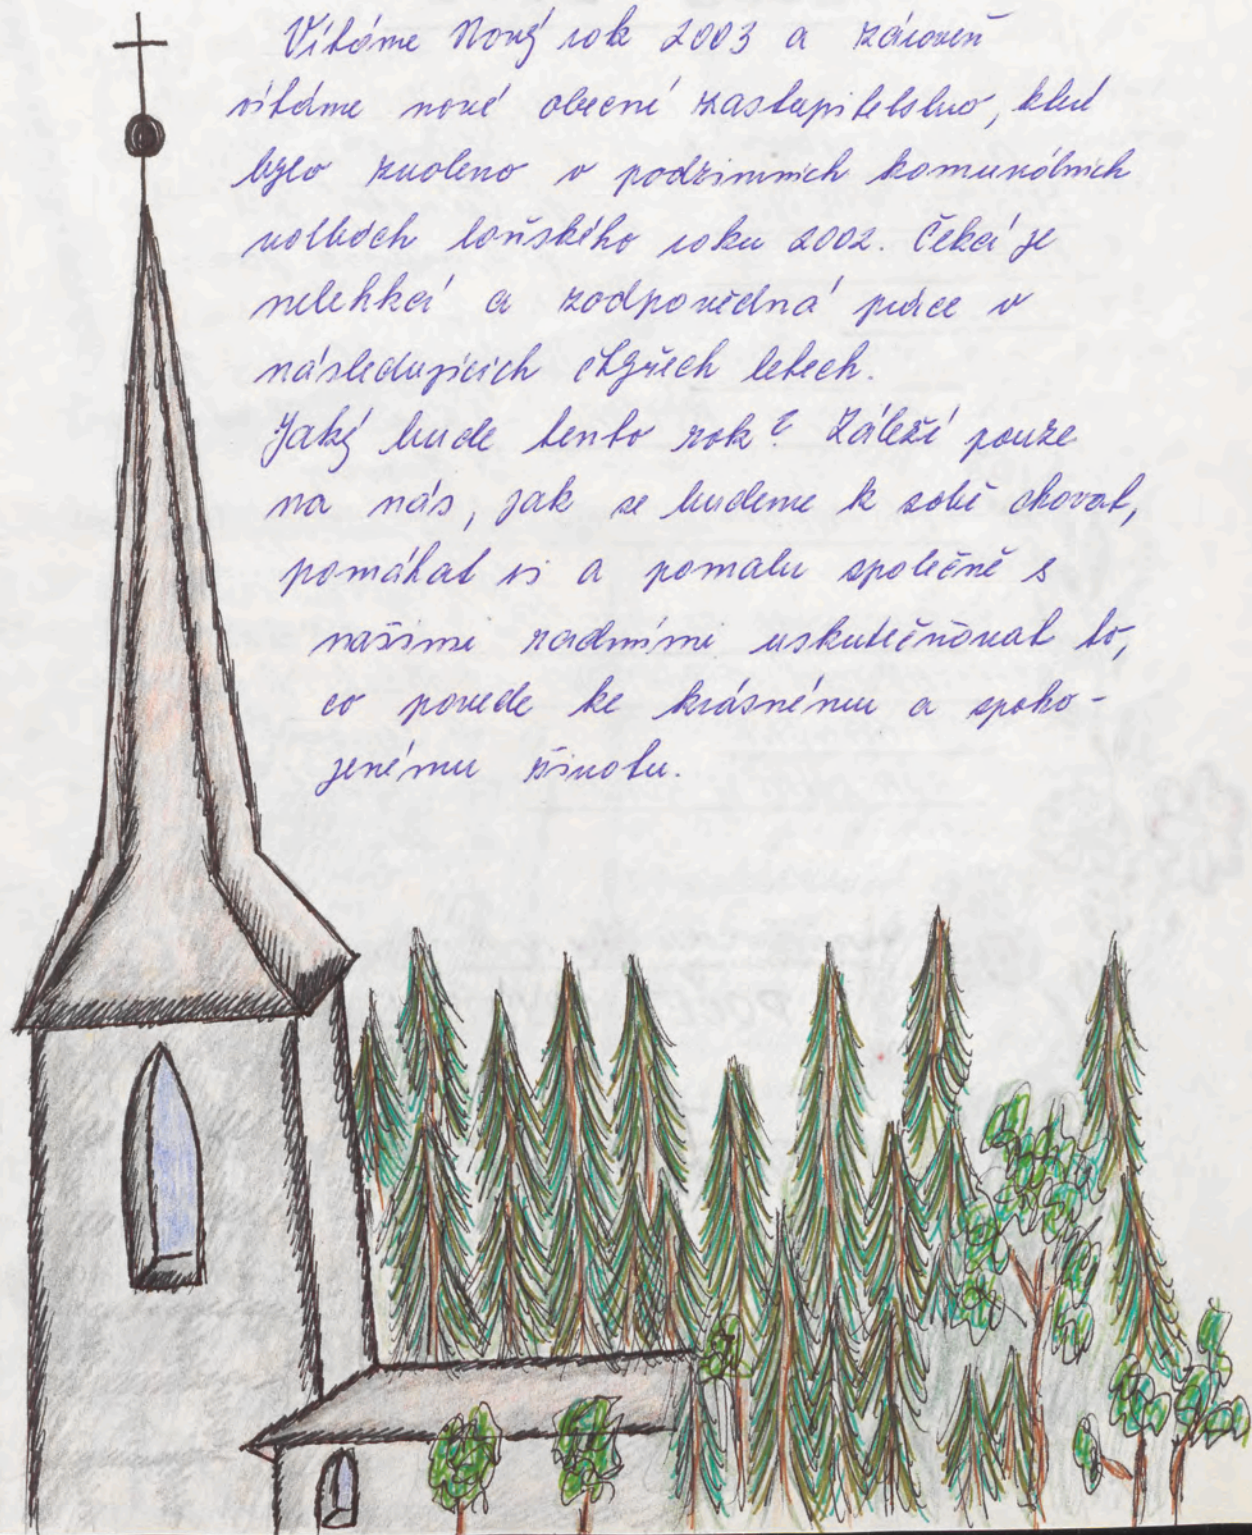 Vítáme Nový rok 2003 a zároveň
vítáme nové obecní zastupitelstvo, které
bylo zvoleno v podzimních komunálních
volbách loňského roku 2002. Čeká je
nelehká a zodpovědná práce v
následujících čtyřech letech.
Jaký bude tento rok? Záleží pouze
na nás, jak se budeme k sobě chovat,
pomáhat si a pomalu společně s
našimi radními uskutečňovat to,
co povede ke krásnému a spoko-
jenému životu.